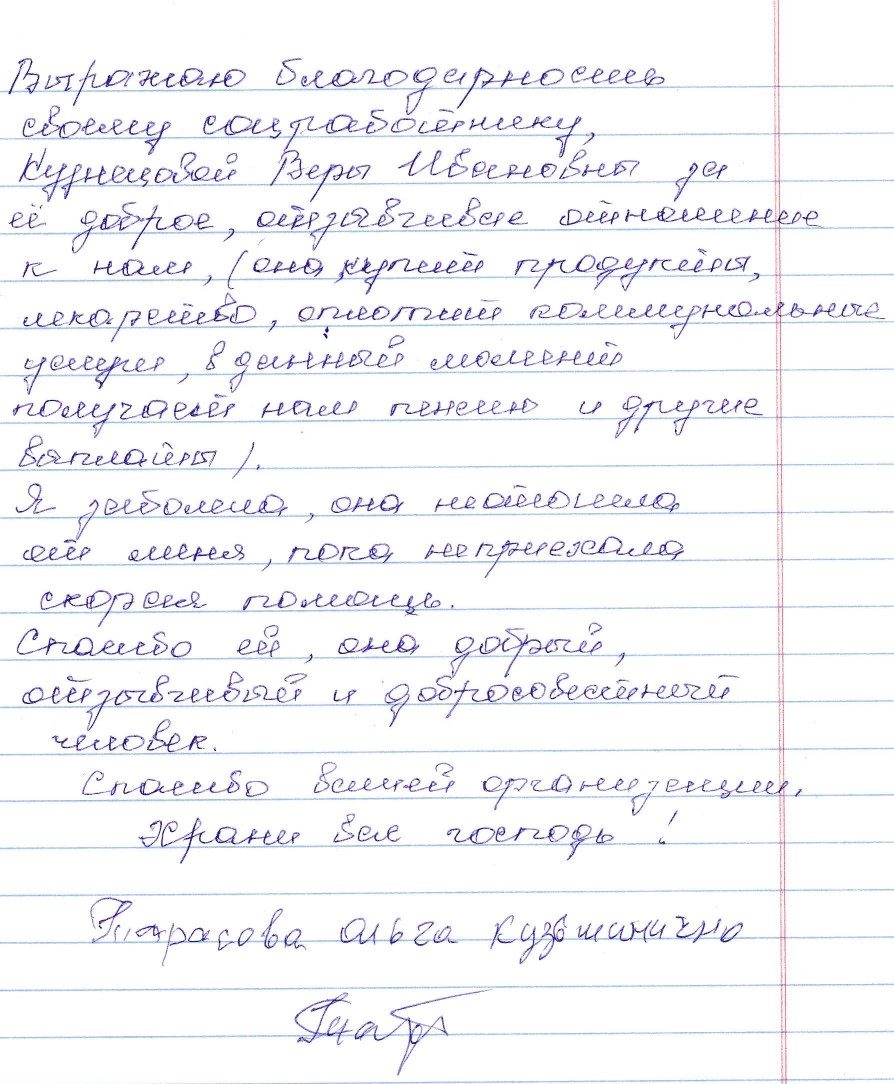 Выражаю благодарность
своему соцработнику,
Кузнецовой Веры Ивановны за
её доброе, отзывчивое отношение
к нам, (она купит продукты,
лекарство, оплотит коммунальные
услуги, в данный момент
получает нам пенсию и другие
выплаты).
Я заболела, она неотошла
от меня, пока неприехала
скорая помощь.
Спасибо ей, она добрый,
отзывчивый и добросовестный
человек.
Спасибо вашей организации.
Храни вас господь!
Тарасова Ольга Кузьминично